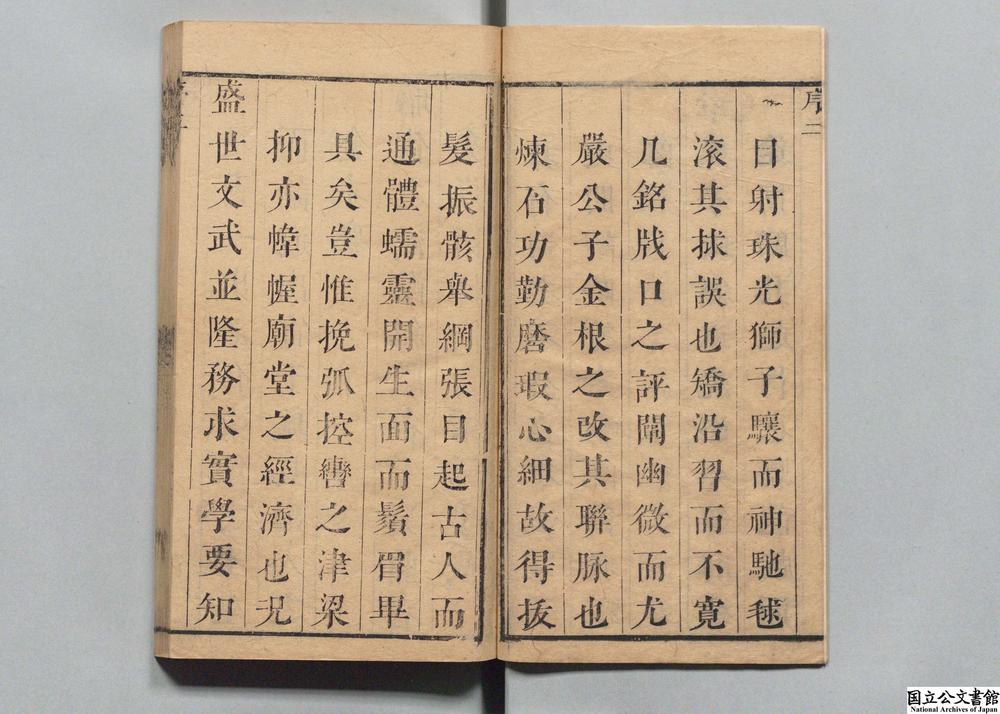 序二
目射珠光獅子驤而神馳毬
滚其捄誤也矯沿習而不寛
几銘戕口之評闡幽微而尤
嚴公子金根之改其聯脉也
煉石功勤磨瑕心細故得拔
髮振骸舉綱張目起古人而
通體蠕靈開生面而鬚眉畢
具矣豈惟挽弧控轡之津梁
抑亦幃幄廟堂之經濟也況
盛世文武並隆務求實學要知
国立公文書館
National Archives of Japan